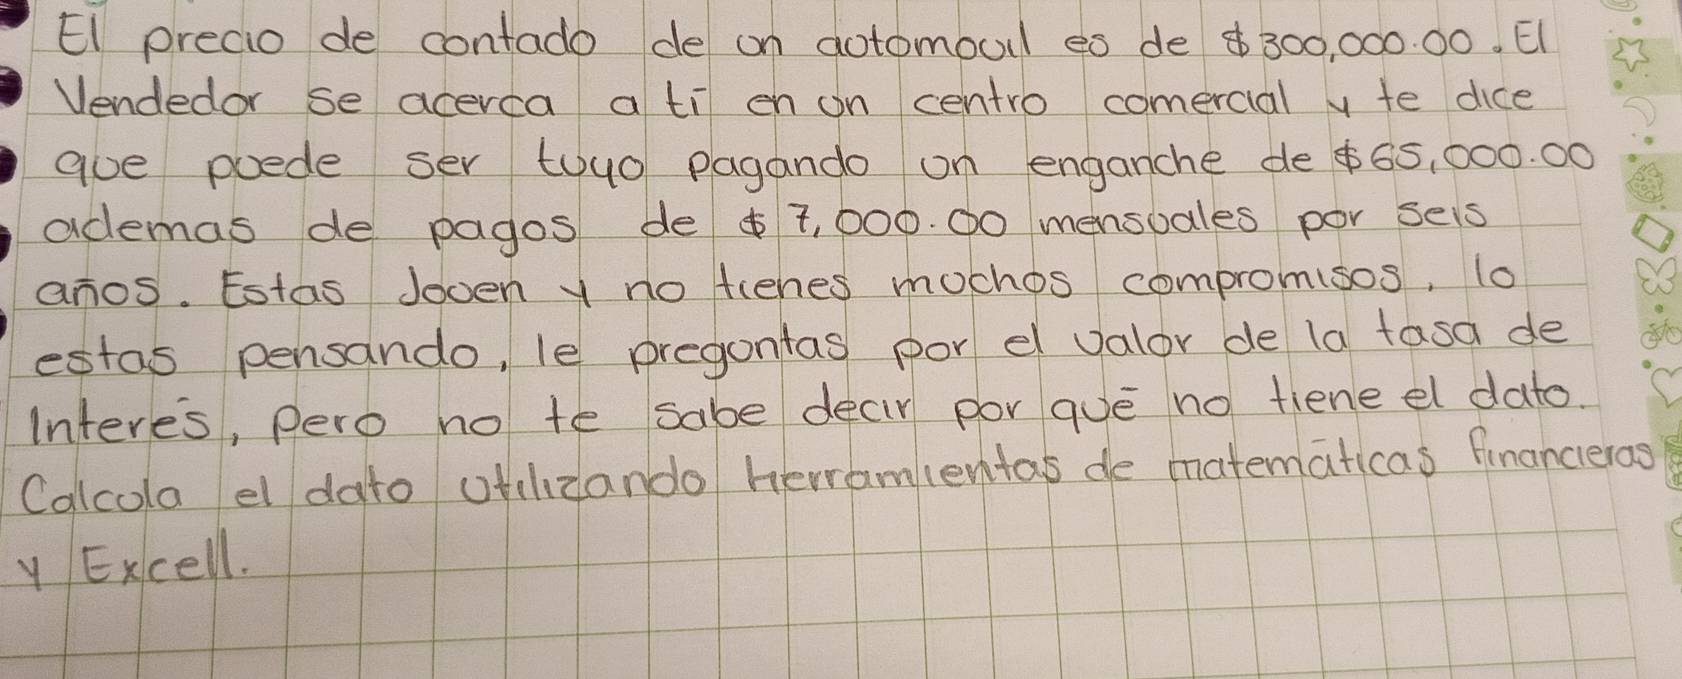 El precio de contado de un automovil es de $300,000.00. El
Vendedor se acerca a ti en un centro comercial y te dice
que puede ser tuyo pagando un enganche de $65,000.00
ademas de pagos de $7,000.00 mensuales por seis
años. Estas Joven y no tienes muchos compromisos, lo
estas pensando, le preguntas por el valor de la tasa de
Interés, pero no te sabe decir por qué no tiene el dato.
Calcula el dato utilizando Herramientas de matemáticas financieras
y Excell.